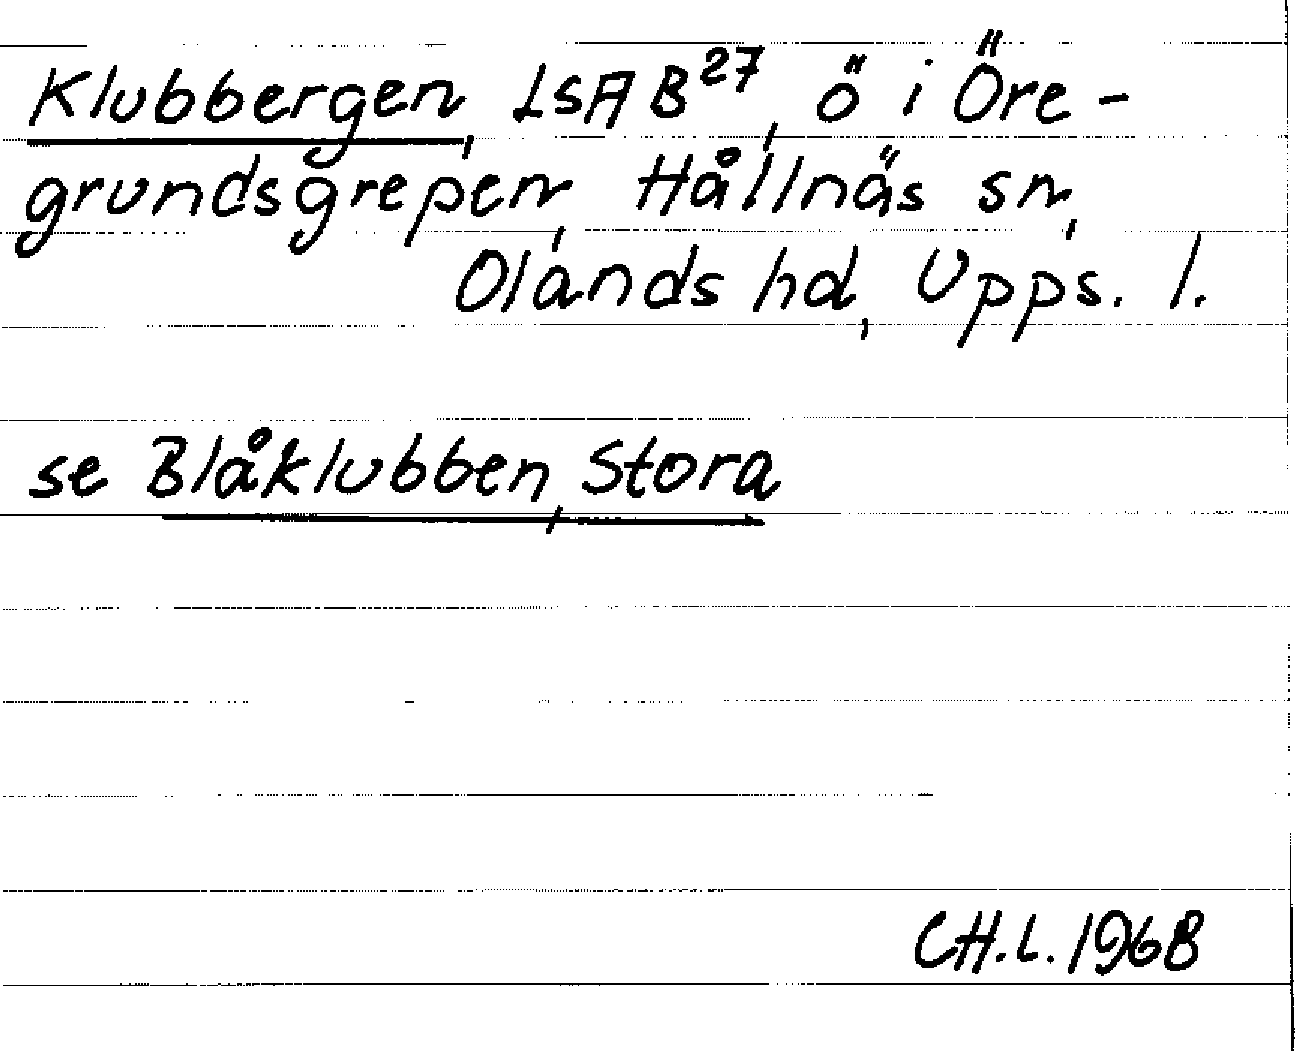 Klubbergen, LSA B²⁷, ö i Öre-
grundsgrepen, Hållnäs sn,
Olands hd, Upps. l.
se Blåklubben, Stora
CH.L. 1968